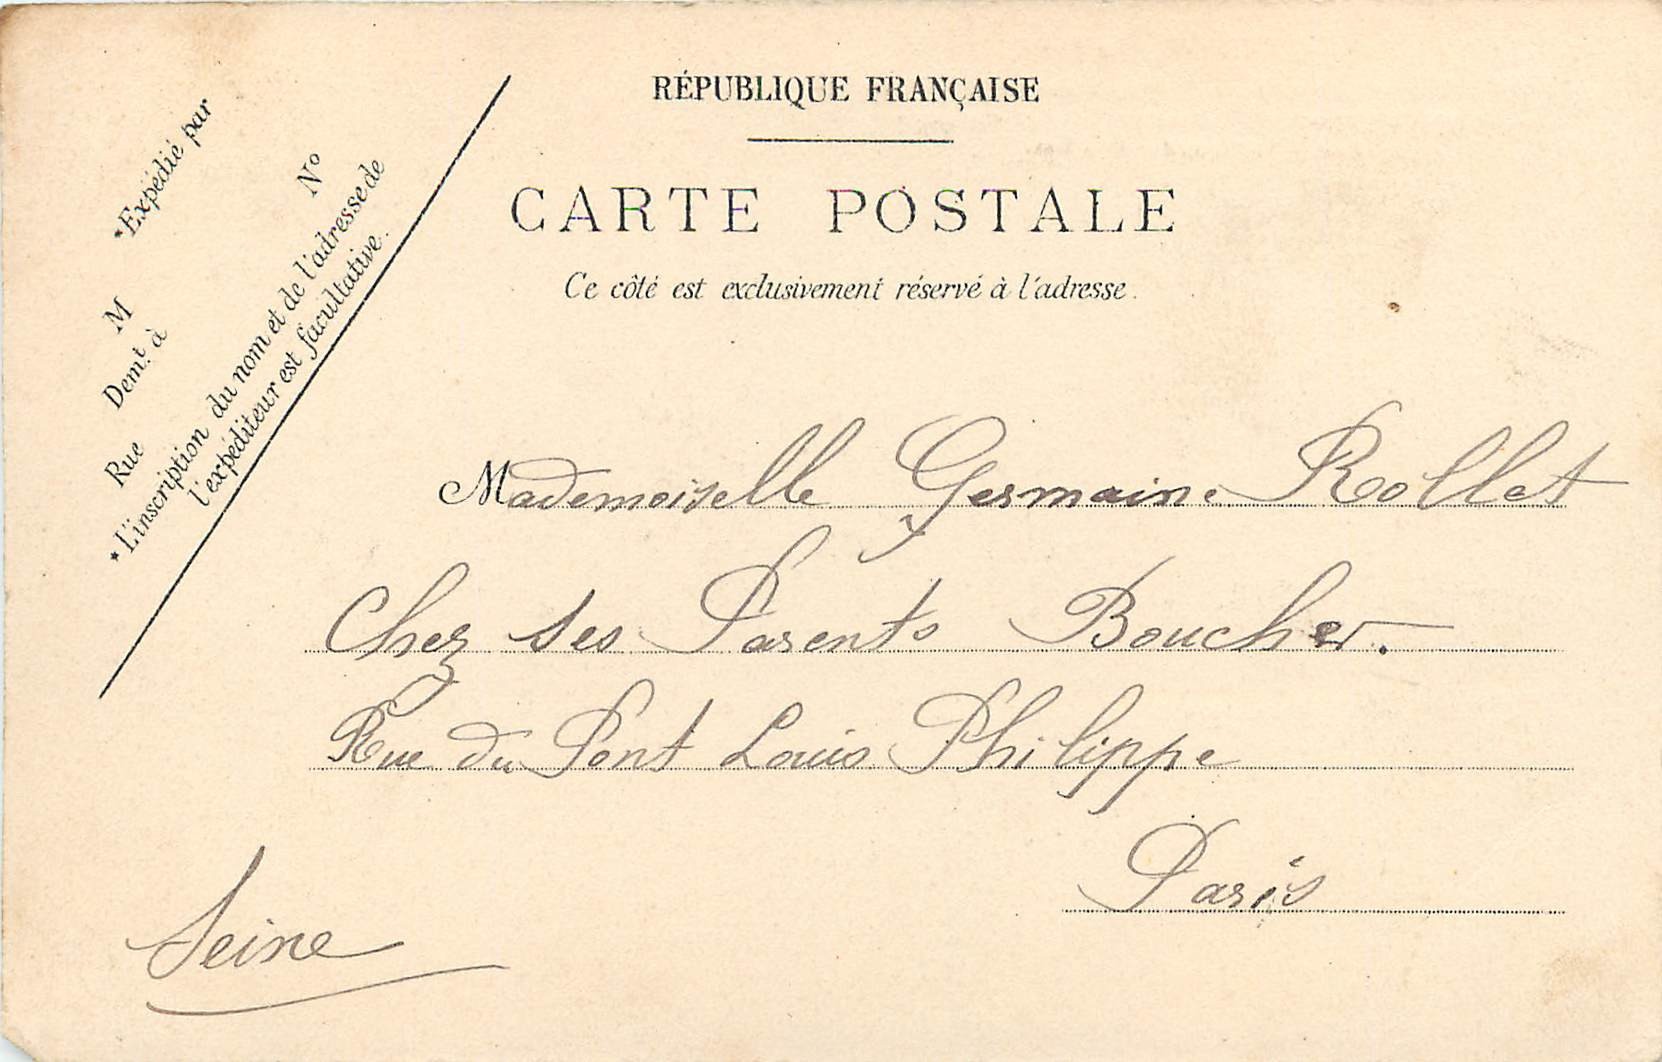 RÉPUBLIQUE FRANÇAISE
CARTE POSTALE
Ce côté est exclusivement réservé à l'adresse.
*Expédié par
M
Demt. à
Rue
No
*L'inscription du nom et de l'adresse de
l'expéditeur est facultative.
Mademoiselle Germaine Rollet
Chez ses Parents Boucher.
Rue du Pont Louis Philippe
Paris
Seine